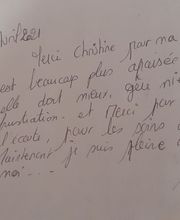 Avril 2021
Merci Christine par ma
est beaucoup plus apaisée
elle dort mieux, gère mi
frustration. et Merci pour
l'écoute, pour les soins
Maintenant je suis pleine d
moi...